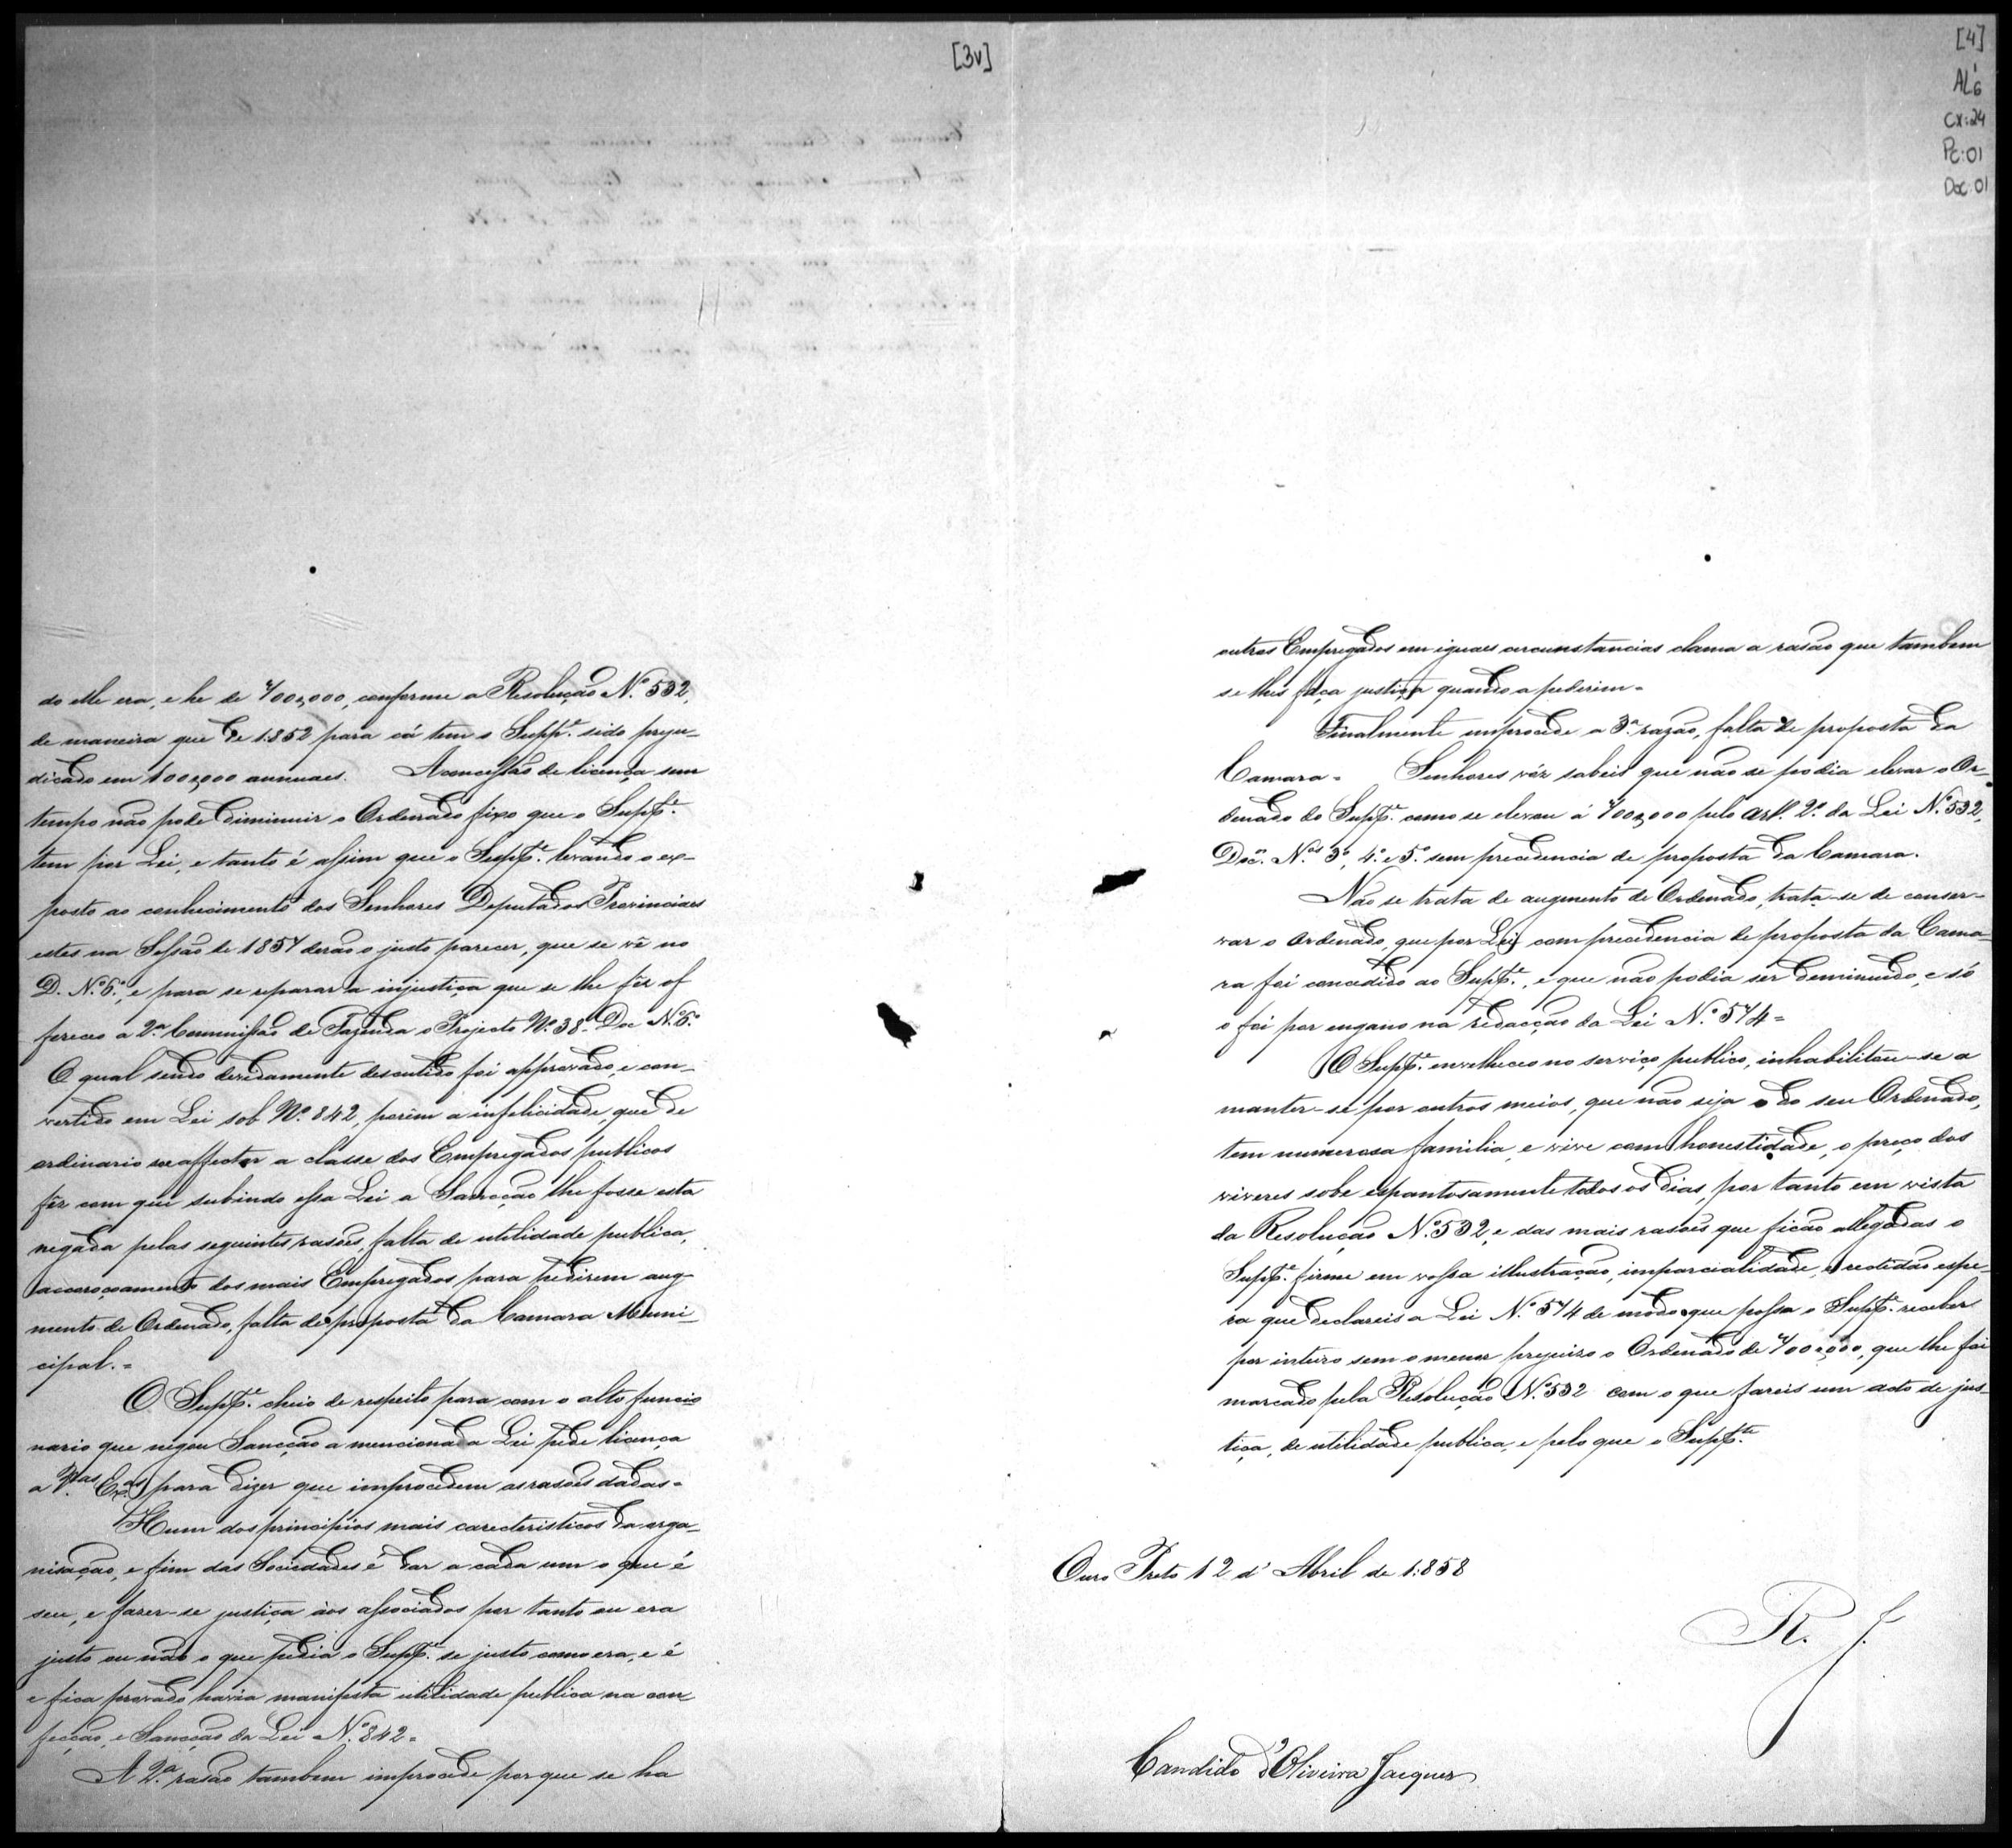 [3v]
do elle era, e he de 400,000, conforme a Resolução N.º 532,
de maneira que de 1:852 para cá tem o Supp.e sido preju-
dicado em 100,000 annuaes. A concessão de licença sem
tempo não pode diminuir o Ordenado fixo que o Supp.e
tem por Lei, e tanto é assim que o Supp.e levando o ex-
posto ao conhecimento dos Senhores Deputados Provinciaes
estes na Sessão de 1857 derão o justo parecer, que se vê no
D. N.º 6.º, e para se reparar a injustiça que se lhe fêz of
fereceo a 2.ª Commissão de Fazenda o Projecto N.º 38 - Doc N.º 6.º
O qual sendo devidamente descutido foi approvado, e con-
vertido em Lei sob N.º 842, porêm a infelicidade, que de
ordinario soe affectar a classe dos Empregados publicos
fêz com que subindo essa Lei a Sancção lhe fosse esta
negada pelas seguintes rasões, falta de utilidade publica,
accoroçoamento dos mais Empregados para pedirem aug-
mento de Ordenado, falta de proposta da Camara Muni-
cipal. =
O Supp.e cheio de respeito para com o alto funcio
nario que negou Sancção a mencionada Lei pede licença
a V.as Ex.as para dizer que improcedem as rasões dadas =
Hum dos principios mais carecteristicos da orga-
nisação, e fim das Sociedades é dar a cada um o que é
seu, e fazer-se justiça áos associados por tanto ou era
justo ou não o que pedia o Supp.e se justo como era, e é
e fica provado havia manifesta utilidade publica na con-
fecção, e Sancção da Lei N.º 842 =
A 2.ª rasão tambem improcede porque se ha
[4]
AL 6
CX: 24
Pc: 01
Doc: 01
outros Empregados em iguaes circunstancias clama a rasão que tambem
se lhes faça justiça quando a pedirem =
Finalmente improcede a 3.ª razão, falta de proposta da
Camara = Senhores vós sabeis que não se podia elevar o Or-
denado do Supp.e como se elevou á 400,000 pelo Art. 2.º da Lei N.º 532,
Doc. N.os 3.º, 4.º e 5.º sem precedencia de proposta da Camara.
Não se trata de augmento de Ordenado, trata-se de conser-
var o Ordenado, que por Lei com precedencia de proposta da Cama-
ra foi concedido ao Supp.e, e que não podia ser deminuido, e só
o foi por engano na redacção da Lei N.º 574 =
O Supp.e envelheceo no serviço publico, inhabilitou-se a
manter-se por outros meios, que não seja o do seu Ordenado,
tem numerosa familia, e vive com honestidade, o preço dos
viveres sobe espantosamente todos os dias, por tanto em vista
da Resolução N.º 532, e das mais rasões que ficão allegadas o
Supp.e firme em vossa illustração, imparcialidade, e rectidão espe-
ra que declareis a Lei N.º 574 de modo que possa o Supp.e receber
por inteiro sem o menor prejuizo o Ordenado de 400,000, que lhe foi
marcado pela Resolução N.º 532 com o que fareis um acto de jus-
tiça, de utilidade publica, e pelo que o Supp.te
Ouro Preto 12 d' Abril de 1:858
R. J.
Candido d'Oliveira Jacques